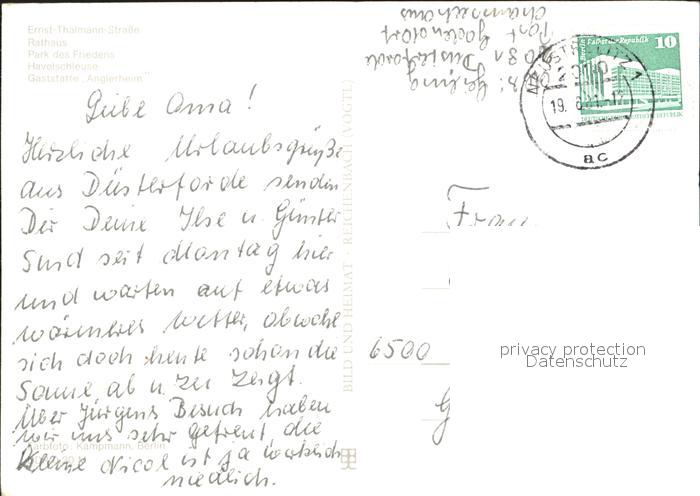 Ernst-Thälmann-Straße
Rathaus
Park des Friedens
Havelschleuse
Gaststätte "Anglerheim"
Liebe Oma!
Herzliche Urlaubsgrüße
aus Düsterförde senden
Dir Deine Ilse u. Günter
Sind seit Montag hier
und warten auf etwas
wärmeres Wetter, obwohl
sich doch heute schon die
Sonne ab u. zu zeigt.
Über Jürgens Besuch haben
wir uns sehr gefreut die
kleine Nicol ist ja wirklich
niedlich.
Farbfoto: Kampmann, Berlin
BILD UND HEIMAT · REICHENBACH (VOGTL)
2081 Düsterförde
Post Godendorf
NEUSTRELITZ 1
2080
19.
ac
10
Berlin, Palast der Republik
DEUTSCHE DEMOKRATISCHE REPUBLIK
Frau
6500
G
privacy protection
Datenschutz